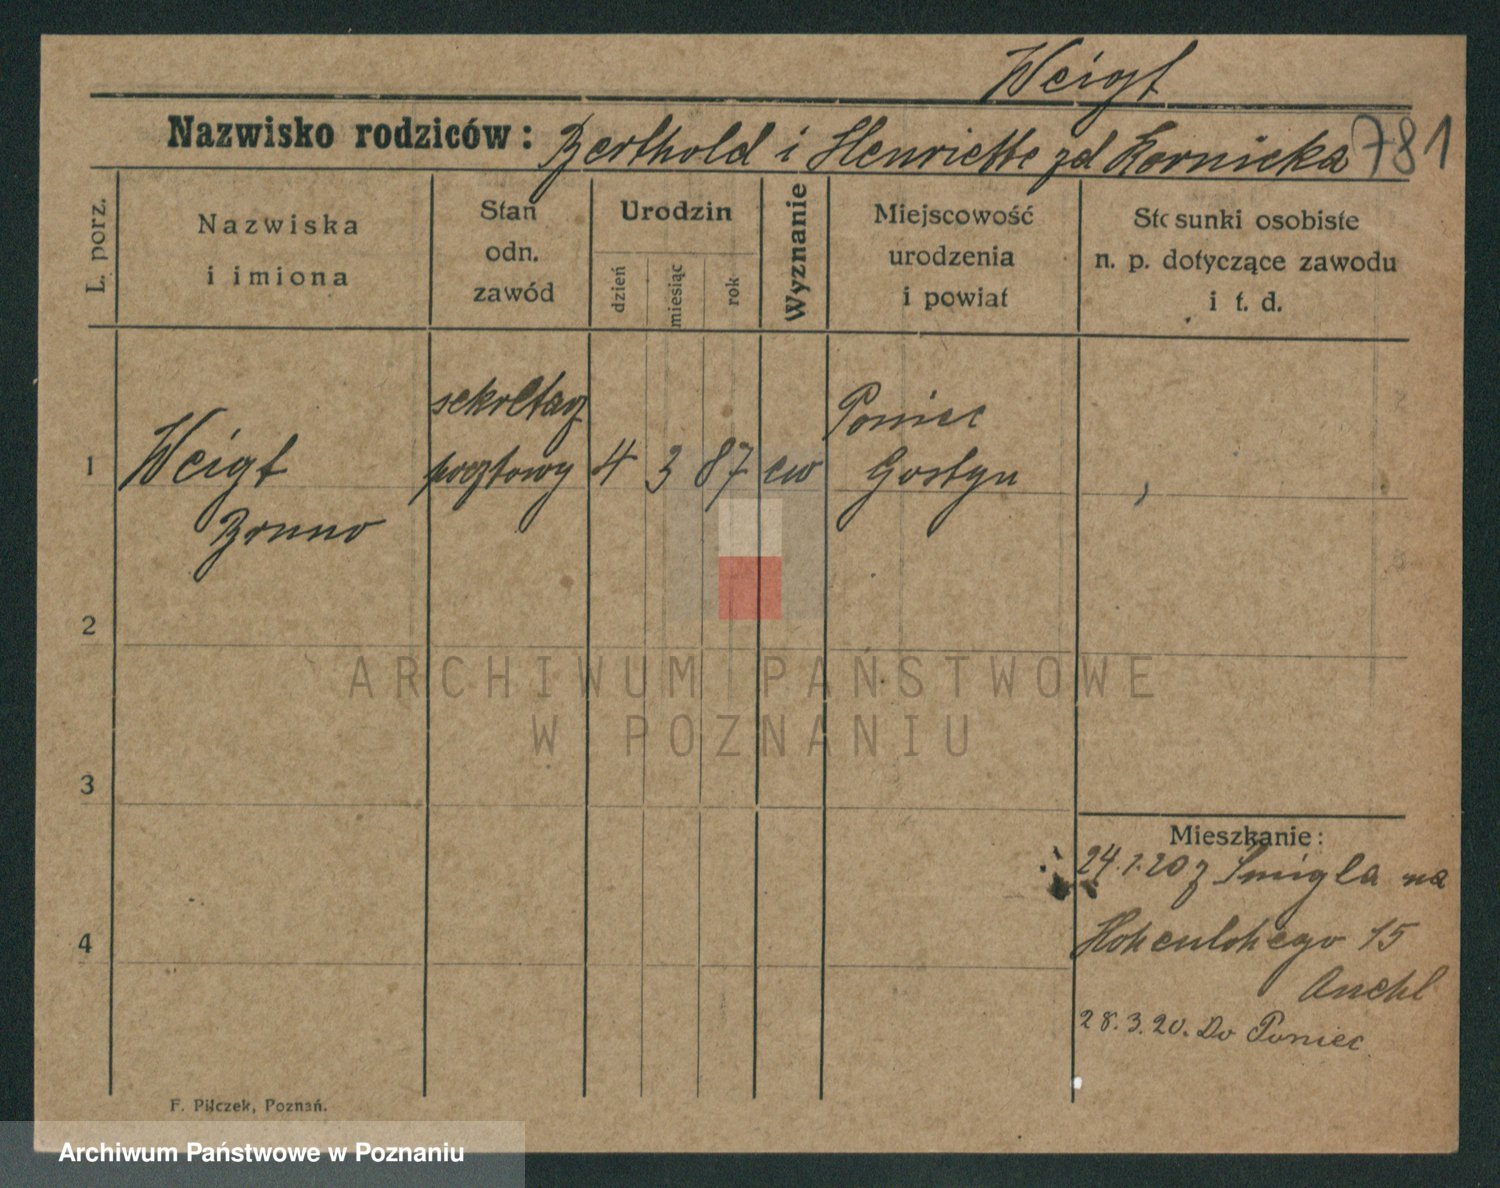 Weigt
Nazwisko rodziców: Berthold i Henriette zd Kornicka 781
L. porz.
Nazwiska
i imiona
Stan
odn.
zawód
Urodzin
dzień
miesiąc
rok
Wyznanie
Miejscowość
urodzenia
i powiat
Stosunki osobiste
n. p. dotyczące zawodu
i t. d.
1
Weigt
Bruno
sekretarz
pocztowy
4 3 87 ew
Poniec
Gostyn
2
3
4
ARCHIWUM PAŃSTWOWE
W POZNANIU
Mieszkanie:
24.1.20 z Śmigla na
Hohenlohego 15
28.3.20. Do Poniec
F. Pilczek, Poznań.
Archiwum Państwowe w Poznaniu